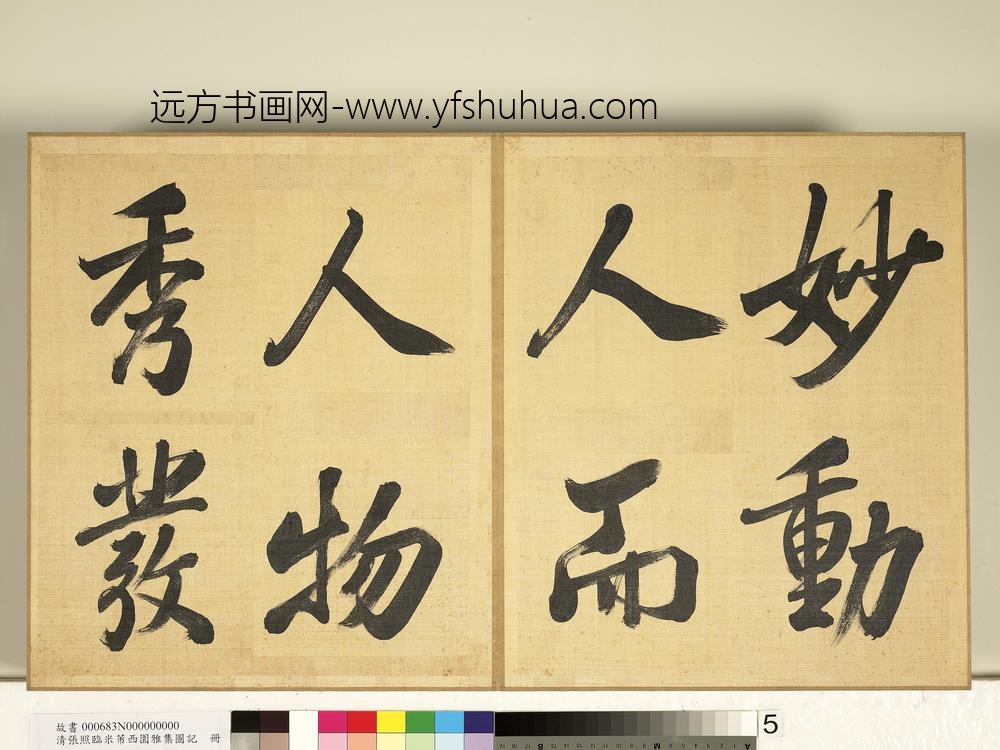 远方书画网-www.yfshuhua.com
妙動
人而
人物
秀發
故書 000683N000000000
清張照臨米芾西園雅集圖記 冊
5